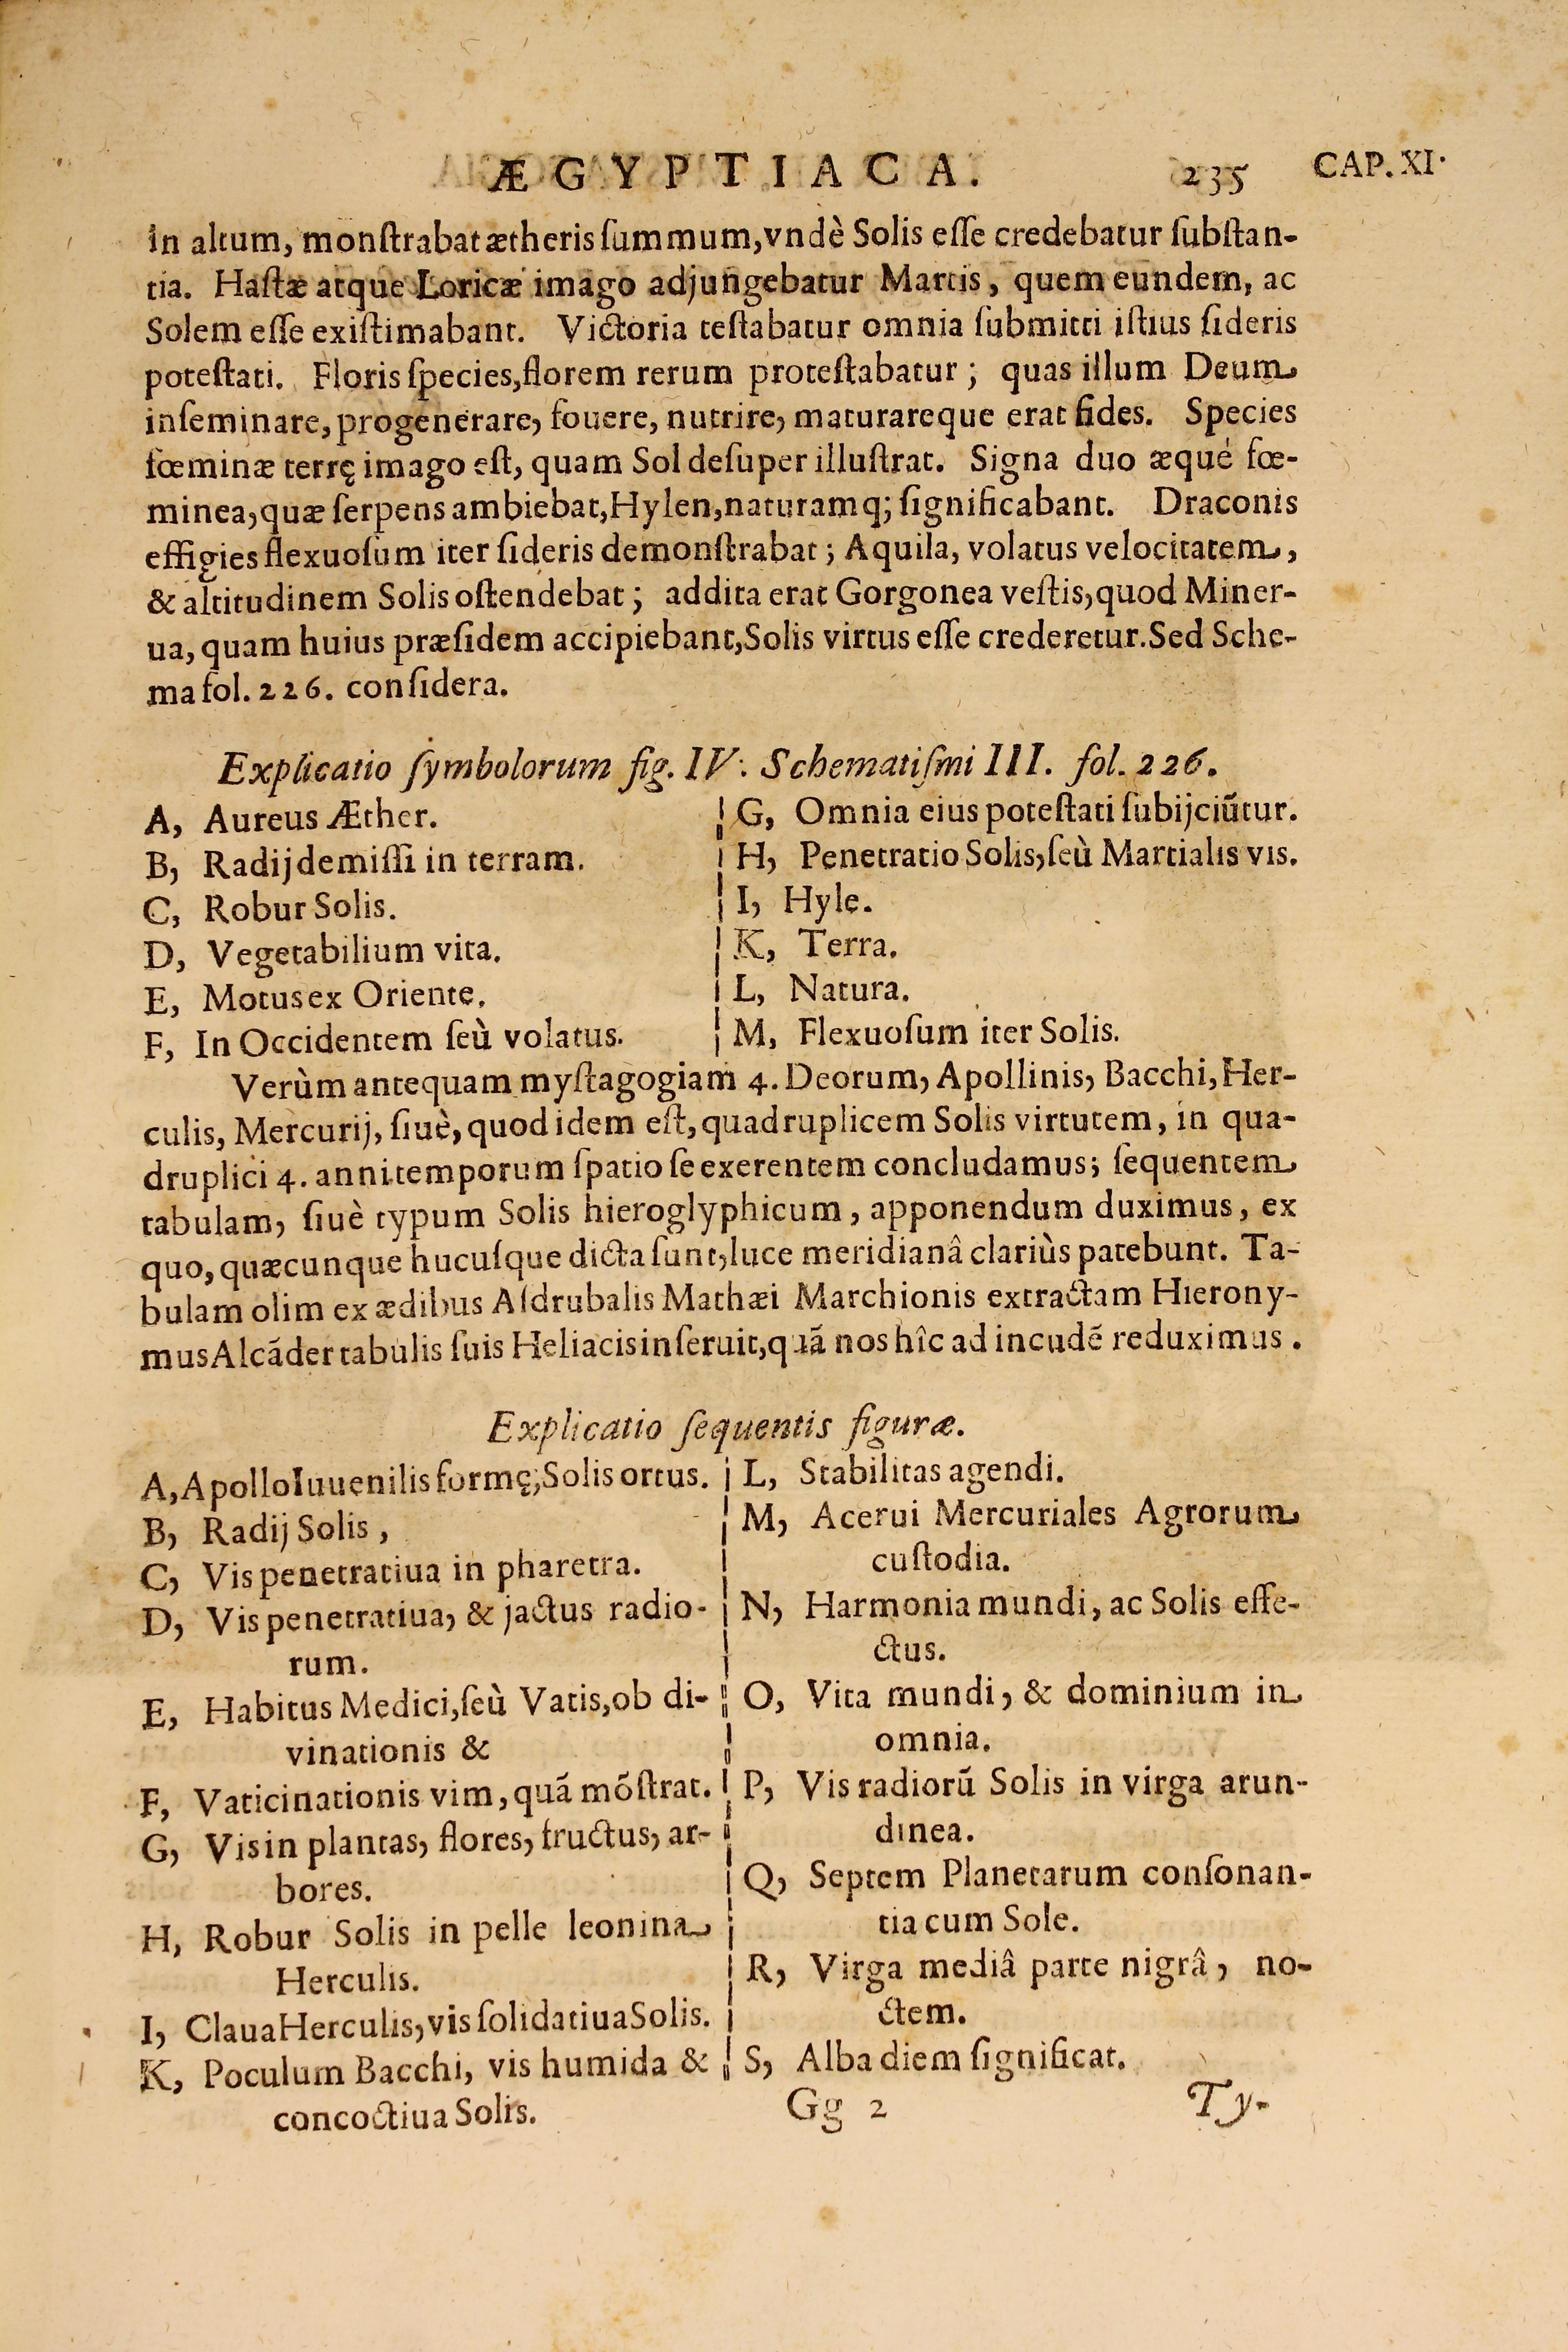 ÆGYPTIACA. 235 CAP. XI.
in altum, monſtrabat ætheris ſummum, vndè Solis eſſe credebatur ſubſtan-
tia. Haſtæ atque Loricæ imago adjungebatur Martis, quem eundem, ac
Solem eſſe exiſtimabant. Victoria teſtabatur omnia ſubmitti iſtius ſideris
poteſtati. Floris ſpecies, florem rerum proteſtabatur; quas illum Deum
inſeminare, progenerare, fouere, nutrire, maturareque erat fides. Species
fœminæ terrę imago eſt, quam Sol deſuper illuſtrat. Signa duo æquè fœ-
minea, quæ ſerpens ambiebat, Hylen, naturamq; ſignificabant. Draconis
effigies flexuoſum iter ſideris demonſtrabat; Aquila, volatus velocitatem,
& altitudinem Solis oſtendebat; addita erat Gorgonea veſtis, quod Miner-
ua, quam huius præſidem accipiebant, Solis virtus eſſe crederetur. Sed Sche-
ma fol. 226. conſidera.
Explicatio ſymbolorum fig. IV. Schematiſmi III. fol. 226.
A, Aureus Æther.
B, Radij demiſſi in terram.
C, Robur Solis.
D, Vegetabilium vita.
E, Motus ex Oriente.
F, In Occidentem ſeù volatus.
G, Omnia eius poteſtati ſubijciũtur.
H, Penetratio Solis, ſeù Martialis vis.
I, Hyle.
K, Terra.
L, Natura.
M, Flexuoſum iter Solis.
Verùm antequam myſtagogiam 4. Deorum, Apollinis, Bacchi, Her-
culis, Mercurij, ſiuè, quod idem eſt, quadruplicem Solis virtutem, in qua-
druplici 4. anni temporum ſpatio ſe exerentem concludamus; ſequentem
tabulam, ſiuè typum Solis hieroglyphicum, apponendum duximus, ex
quo, quæcunque hucuſque dicta ſunt, luce meridianâ clariùs patebunt. Ta-
bulam olim ex ædibus Aſdrubalis Mathæi Marchionis extractam Hierony-
mus Alcãder tabulis ſuis Heliacis inſeruit, quã nos hîc ad incudẽ reduximus.
Explicatio ſequentis figuræ.
A, Apollo Iuuenilis formę, Solis ortus.
B, Radij Solis,
C, Vis penetratiua in pharetra.
D, Vis penetratiua, & jactus radio-
rum.
E, Habitus Medici, ſeù Vatis, ob di-
vinationis &
F, Vaticinationis vim, quã mõſtrat.
G, Vis in plantas, flores, fructus, ar-
bores.
H, Robur Solis in pelle leonina
Herculis.
I, Claua Herculis, vis ſolidatiua Solis.
K, Poculum Bacchi, vis humida &
concoctiua Solis.
L, Stabilitas agendi.
M, Acerui Mercuriales Agrorum
cuſtodia.
N, Harmonia mundi, ac Solis effe-
ctus.
O, Vita mundi, & dominium in
omnia.
P, Vis radiorũ Solis in virga arun-
dinea.
Q, Septem Planetarum conſonan-
tia cum Sole.
R, Virga mediâ parte nigrâ, no-
ctem.
S, Alba diem ſignificat.
Gg 2 Ty-